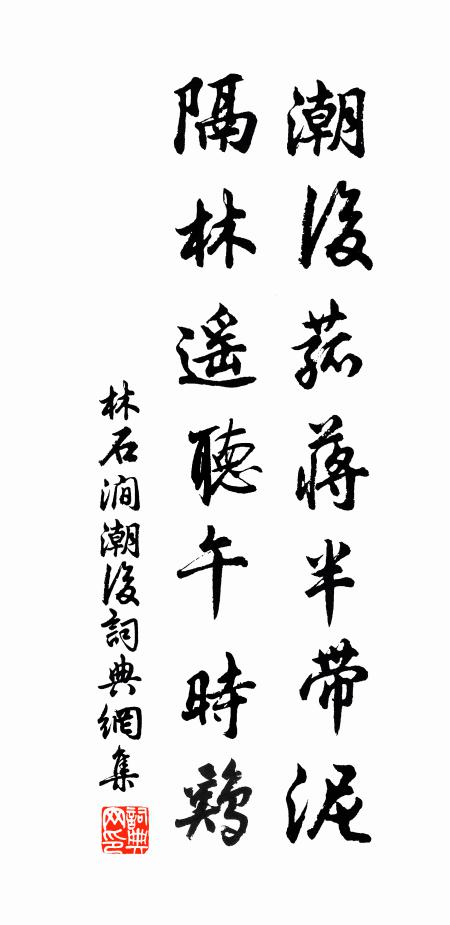 潮後菰蔣半帶泥
隔林遥聽午時鷄
林石澗潮後詞典網集
詞典网印